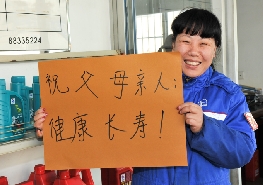 88335224
祝父母亲人:
健康长寿!